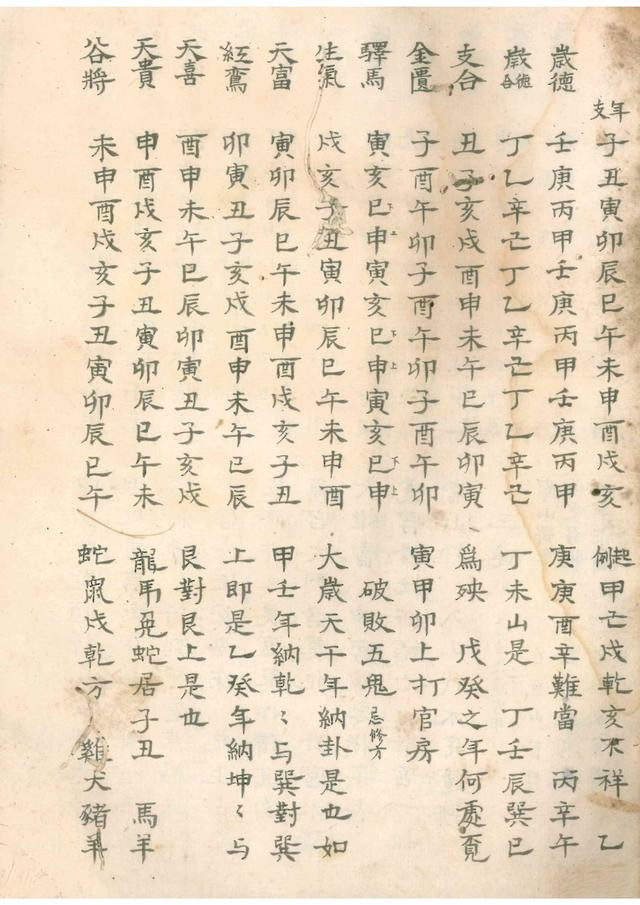 年支 子丑寅卯辰巳午未申酉戌亥 起例 甲己戌乾亥不祥 乙
歲德 壬庚丙甲壬庚丙甲壬庚丙甲 庚庚酉辛難當 丙辛午
歲德合 丁乙辛己丁乙辛己丁乙辛己 丁未山是 丁壬辰巽巳
支合 丑子亥戌酉申未午巳辰卯寅 爲殃 戊癸之年何處覓
金匱 子酉午卯子酉午卯子酉午卯 寅甲卯上打官房
驛馬 寅亥巳下申上寅亥巳下申上寅亥巳下申上 破敗五鬼 忌修方
生氣 戌亥子丑寅卯辰巳午未申酉 大歲天干年納卦是也如
天富 寅卯辰巳午未申酉戌亥子丑 甲壬年納乾〻与巽對巽
紅鸞 卯寅丑子亥戌酉申未午巳辰 上即是乙癸年納坤〻与
天喜 酉申未午巳辰卯寅丑子亥戌 艮對艮上是也
天貴 申酉戌亥子丑寅卯辰巳午未 龍乕兎蛇居子丑 馬羊
谷將 未申酉戌亥子丑寅卯辰巳午 蛇鼠戌乾方 雞犬豬羊